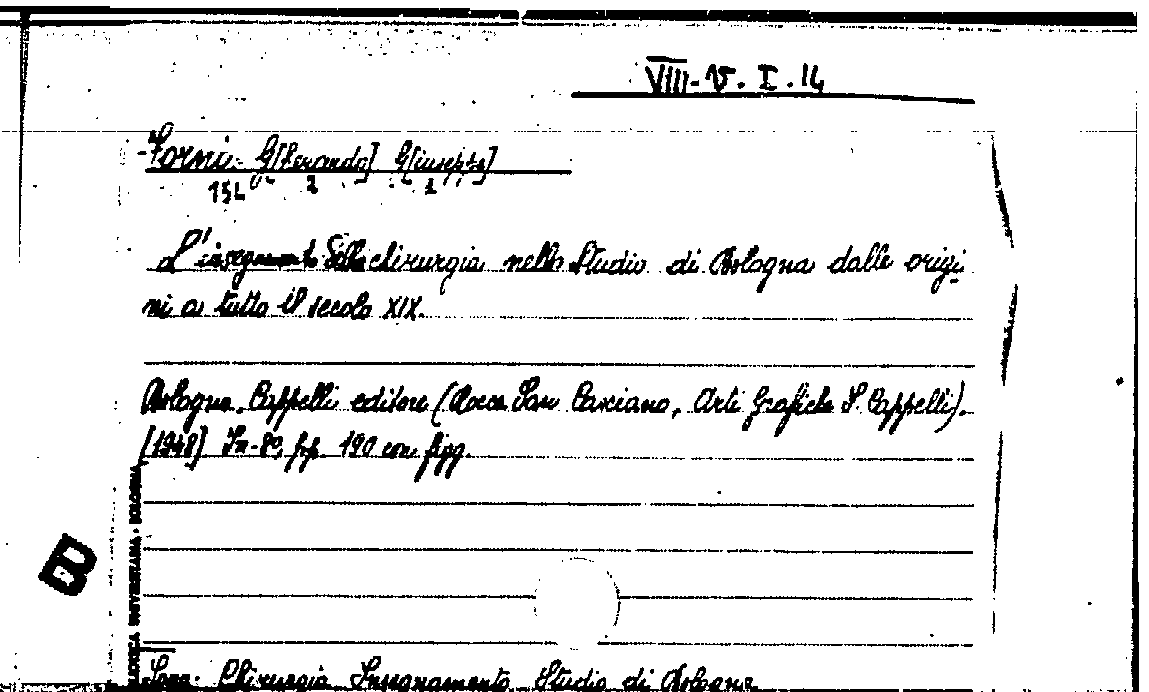 VIII-V. I. 14
Forni G[herardo] G[iuseppe]
154 2 1
L'insegnamento della chirurgia nello Studio di Bologna dalle origi
ni a tutto il secolo XIX.
Bologna, Cappelli editore (Rocca San Casciano, Arti Grafiche S. Cappelli).
[1948] In-8º, pp. 190 con figg.
B
BIBLIOTECA UNIVERSITARIA - BOLOGNA
Chirurgia Insegnamento Studio di Bologna